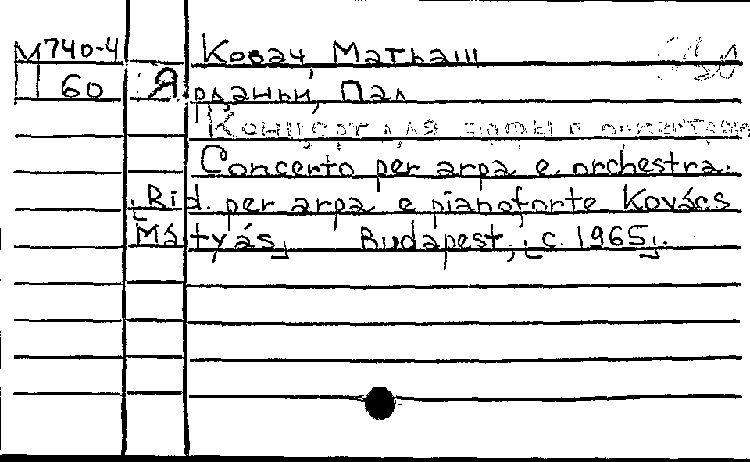 М740-4 Ковач, Матьаш
П 60 Ярдањи, Пал
Концерт для арфы с оркестром
Concerto per arpa e orchestra.
[Rid. per arpa e pianoforte Kovács
Mátyás] Budapest, [c. 1965].